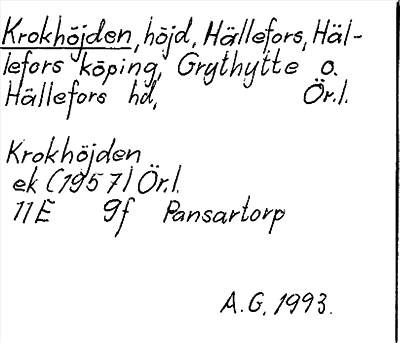 Krokhöjden, höjd, Hällefors, Häl-
lefors köping, Grythytte o.
Hällefors hd, Ör.l.
Krokhöjden
ek (1957) Ör.l.
11E 9f Pansartorp
A.G. 1993.